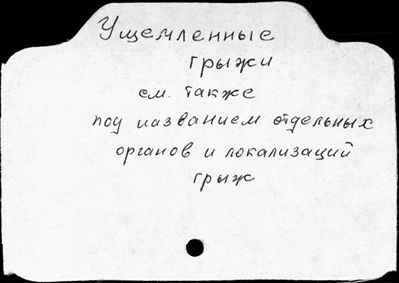 Ущемленные
грыжи
см. также
под названием отдельных
органов и локализаций
грыж